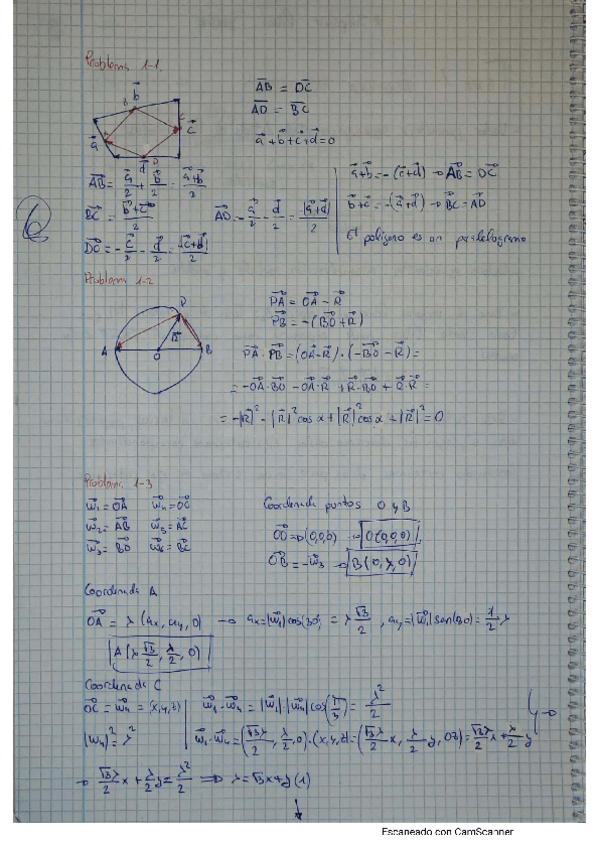 Problema 1-1.
b⃗
B
AB⃗ = DC⃗
AD⃗ = BC⃗
a⃗ + b⃗ + c⃗ + d⃗ = 0
a⃗ A C c⃗
d⃗ D
AB⃗ = a⃗/2 + b⃗/2 = (a⃗+b⃗)/2
a⃗+b⃗ = -(c⃗+d⃗) → AB⃗ = DC⃗
BC⃗ = (b⃗+c⃗)/2 AD = -a⃗/2 - d⃗/2 = (a⃗+d⃗)/2
b⃗+c⃗ = -(a⃗+d⃗) → BC⃗ = AD⃗
DC⃗ = -c⃗/2 - d⃗/2 = (c⃗+d⃗)/2
El polígono es un paralelogramo
6
Problema 1-2
P
R⃗
A O B
PA⃗ = OA⃗ - R⃗
PB⃗ = -(BO⃗ + R⃗)
PA⃗ · PB⃗ = (OA⃗-R⃗) · (-BO⃗ - R⃗) =
= -OA⃗·BO⃗ - OA⃗·R⃗ + R⃗·BO⃗ + R⃗·R⃗ =
= -|R⃗|² - |R⃗|² cos α + |R⃗|² cos α + |R⃗|² = 0
Problema 1-3
w⃗₁ = OA⃗ w⃗₄ = OC⃗
w⃗₂ = AB⃗ w⃗₅ = AC⃗
w⃗₃ = BO⃗ w⃗₆ = BC⃗
Coordenada puntos O y B
OO⃗ → (0,0,0) → O(0,0,0)
OB⃗ = -w⃗₃ → B(0,λ,0)
Coordenada A
OA⃗ = λ(ax, ay, 0) → ax = |w⃗₁| cos(30) = λ √3/2 , ay = |w⃗₁| sen(30) = 1/2 λ
A(λ √3/2, λ/2, 0)
Coordenada C
OC⃗ = w⃗₄ = (x,y,z)
w⃗₁·w⃗₄ = |w⃗₁|·|w⃗₄| cos(π/3) = λ²/2
|w₄|² = λ²
w⃗₁·w⃗₄ = (√3λ/2, λ/2, 0)·(x,y,z) = (√3λ/2 x, λ/2 y, 0z) = √3λ/2 x + λ/2 y →
→ √3λ/2 x + λ/2 y = λ²/2 ⇒ λ = √3x + y (1)
Escaneado con CamScanner